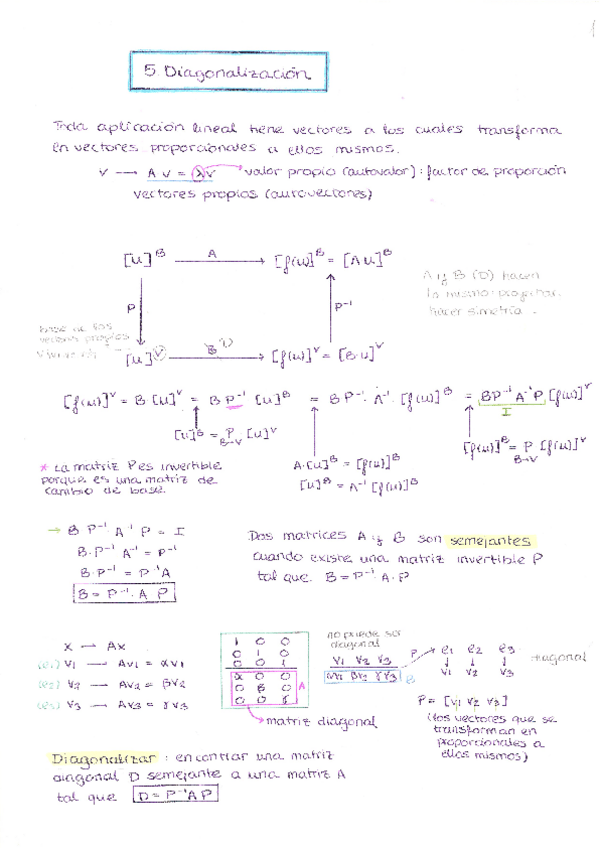 5 Diagonalización
Toda aplicación lineal tiene vectores a los cuales transforma
en vectores proporcionales a ellos mismos.
v → A v = λv → valor propio (autovalor): factor de proporción
vectores propios (autovectores)
[u]^B —A→ [f(u)]^B = [A u]^B
A y B (D) hacen
lo mismo: proyectar,
hacer simetría.
P P⁻¹
base de los
vectores propios
[u]^V → [f(u)]^V = [B·u]^V
[f(u)]^V = B·[u]^V = B P⁻¹ [u]^B = B P⁻¹ · A⁻¹ · [f(u)]^B = B P⁻¹ A⁻¹ P [f(u)]^V
I
[u]^B = P [u]^V
B→V
[f(u)]^B = P [f(u)]^V
B→V
* La matriz P es invertible
porque es una matriz de
cambio de base.
A·[u]^B = [f(u)]^B
[u]^B = A⁻¹ [f(u)]^B
→ B P⁻¹ A⁻¹ P = I
B·P⁻¹ A⁻¹ = P⁻¹
B·P⁻¹ = P⁻¹A
B = P⁻¹ · A P
Dos matrices A y B son semejantes
cuando existe una matriz invertible P
tal que B = P⁻¹ A · P
x → Ax
(e1) v1 → Av1 = αv1
(e2) v2 → Av2 = βv2
(e3) v3 → Av3 = γv3
1 0 0
0 1 0
0 0 1
α 0 0
0 β 0
0 0 γ
A
matriz diagonal
no puede ser
diagonal
v1 v2 v3
αv1 βv2 γv3
B
P
e1 e2 e3
↓ ↓ ↓
v1 v2 v3
diagonal
P = [v1 v2 v3]
(los vectores que se
transforman en
proporcionales a
ellos mismos)
Diagonalizar: encontrar una matriz
diagonal D semejante a una matriz A
tal que D = P⁻¹ A P